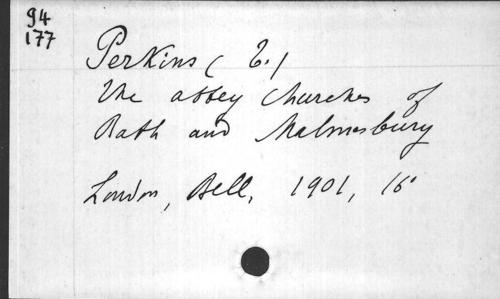 94
177
Perkins (T.)
The abbey churches of
Bath and Malmesbury
London, Bell, 1901, 16°